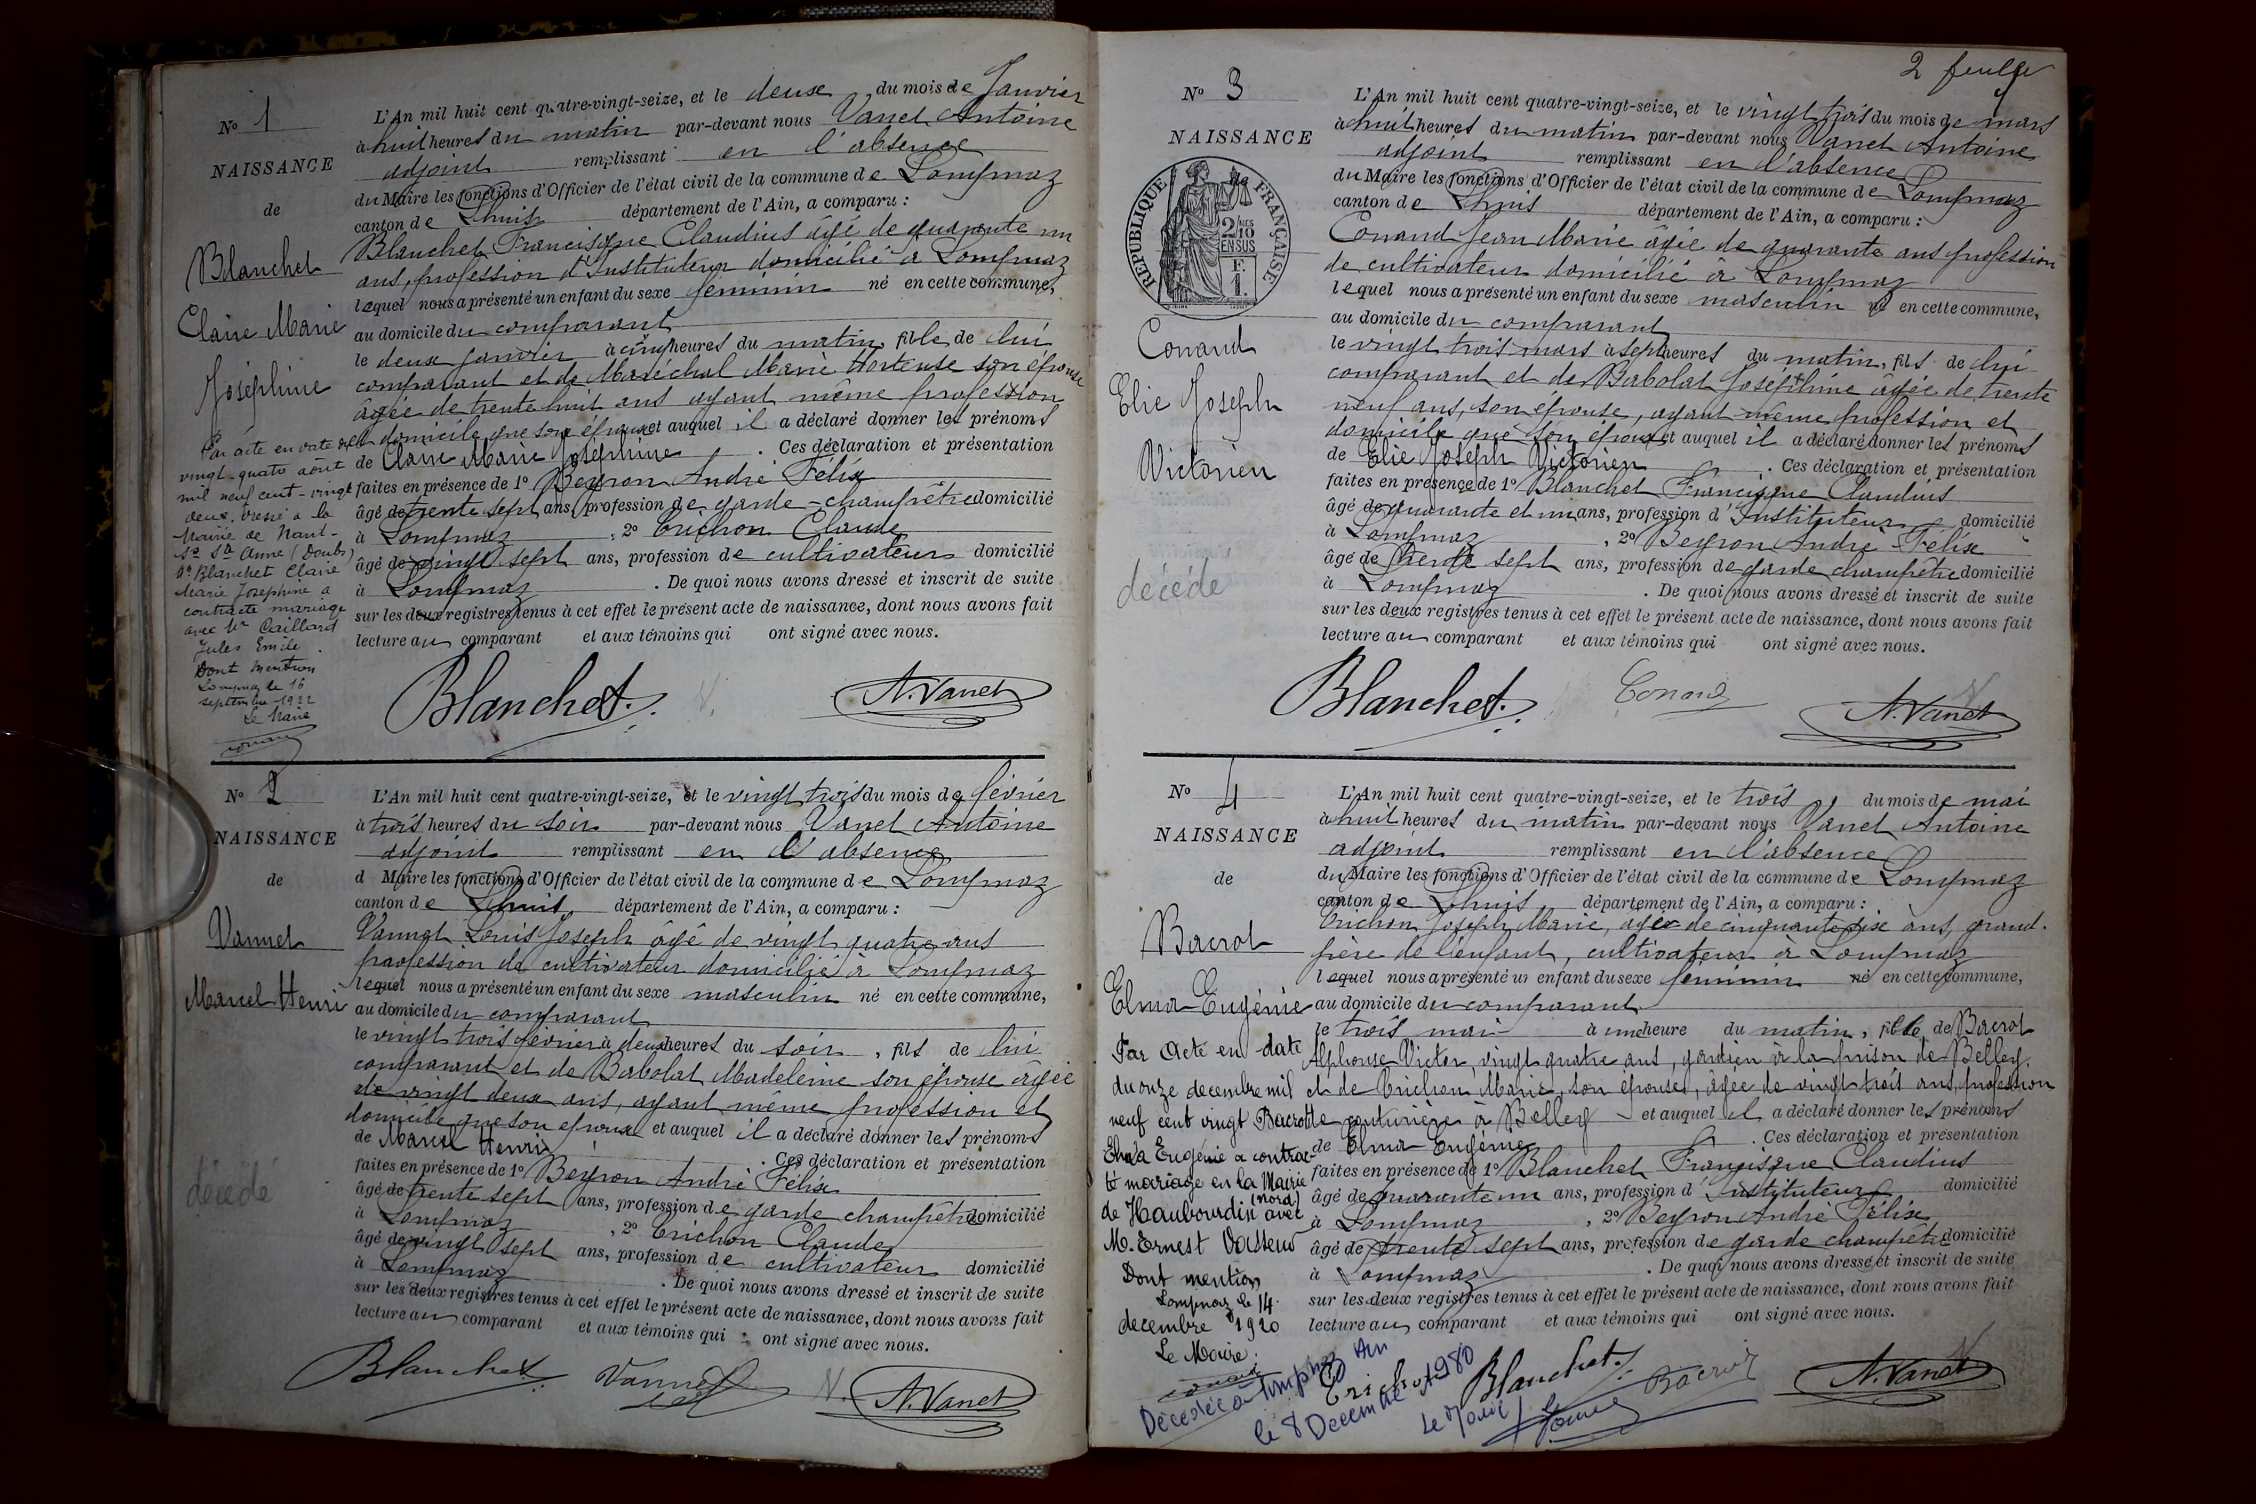 No 1
NAISSANCE
de
Blanchet
Claire Marie
Joséphine
Par acte en date du
vingt-quatre août
mil neuf cent-vingt
deux, dressé à la
Mairie de
Ste Anne (Doubs)
Blanchet Claire
Marie Joséphine a
contracté mariage
avec Mr Caillard
Jules Emile
Dont mention
Lompnaz le 16
septembre 1922
Le Maire
L'An mil huit cent quatre-vingt-seize, et le deux du mois de Janvier
à huit heures du matin par-devant nous Vanet Antoine
adjoint remplissant en l'absence
du Maire les fonctions d'Officier de l'état civil de la commune de Lompnaz
canton de Lhuis département de l'Ain, a comparu :
Blanchet Francisque Claudius âgé de quarante un
ans, profession d'Instituteur domicilié à Lompnaz
lequel nous a présenté un enfant du sexe féminin né en cette commune,
au domicile du comparant
le deux janvier à cinq heures du matin, fille de lui
comparant et de Maréchal Marie Hortense son épouse
âgée de trente huit ans ayant même profession
et domicile que son époux et auquel il a déclaré donner les prénoms
de Claire Marie Joséphine . Ces déclaration et présentation
faites en présence de 1° Beyron André Félix
âgé de trente sept ans, profession de garde-champêtre domicilié
à Lompnaz , 2° Trichon Claude
âgé de vingt sept ans, profession de cultivateur domicilié
à Lompnaz . De quoi nous avons dressé et inscrit de suite
sur les deux registres tenus à cet effet le présent acte de naissance, dont nous avons fait
lecture au comparant et aux témoins qui ont signé avec nous.
Blanchet A. Vanet
No 2
NAISSANCE
de
Vannet
Marcel Henri
décédé
L'An mil huit cent quatre-vingt-seize, et le vingt trois du mois de février
à trois heures du soir par-devant nous Vanet Antoine
adjoint remplissant en l'absence
d Maire les fonctions d'Officier de l'état civil de la commune de Lompnaz
canton de Lhuis département de l'Ain, a comparu :
Vannet Louis Joseph âgé de vingt quatre ans
profession de cultivateur domicilié à Lompnaz
lequel nous a présenté un enfant du sexe masculin né en cette commune,
au domicile du comparant
le vingt trois février à deux heures du soir, fils de lui
comparant et de Babolat Madeleine son épouse âgée
de vingt deux ans, ayant même profession et
domicile que son époux et auquel il a déclaré donner les prénoms
de Marcel Henri . Ces déclaration et présentation
faites en présence de 1° Beyron André Félix
âgé de trente sept ans, profession de garde champêtre domicilié
à Lompnaz , 2° Trichon Claude
âgé de vingt sept ans, profession de cultivateur domicilié
à Lompnaz . De quoi nous avons dressé et inscrit de suite
sur les deux registres tenus à cet effet le présent acte de naissance, dont nous avons fait
lecture au comparant et aux témoins qui ont signé avec nous.
Blanchet Vannet A. Vanet
2
No 3
NAISSANCE
de
RÉPUBLIQUE FRANÇAISE
2/10 EN SUS
F. 1.
Conand
Elie Joseph
Victorien
décédé
L'An mil huit cent quatre-vingt-seize, et le vingt trois du mois de mars
à huit heures du matin par-devant nous Vanet Antoine
adjoint remplissant en l'absence
du Maire les fonctions d'Officier de l'état civil de la commune de Lompnaz
canton de Lhuis département de l'Ain, a comparu :
Conand Jean Marie âgée de quarante ans profession
de cultivateur domicilié à Lompnaz
lequel nous a présenté un enfant du sexe masculin né en cette commune,
au domicile du comparant
le vingt trois mars à sept heures du matin, fils de lui
comparant et de Babolat Joséphine âgée de trente
neuf ans, son épouse, ayant même profession et
domicile que son époux et auquel il a déclaré donner les prénoms
de Elie Joseph Victorien . Ces déclaration et présentation
faites en présence de 1° Blanchet Francisque Claudius
âgé de quarante et un ans, profession d'Instituteur domicilié
à Lompnaz , 2° Beyron André Félix
âgé de trente sept ans, profession de garde champêtre domicilié
à Lompnaz . De quoi nous avons dressé et inscrit de suite
sur les deux registres tenus à cet effet le présent acte de naissance, dont nous avons fait
lecture au comparant et aux témoins qui ont signé avec nous.
Blanchet Conand A. Vanet
No 4
NAISSANCE
de
Bacrot
Elma Eugénie
Par Acte en date
du onze décembre mil
neuf cent vingt Bacrot
Elma Eugénie a contrac-
té mariage en la Mairie
de Haubourdin (nord) avec
M. Ernest Vasseur
Dont mention
Lompnaz le 14
decembre 1920
Le Maire.
L'An mil huit cent quatre-vingt-seize, et le trois du mois de mai
à huit heures du matin par-devant nous Vanet Antoine
adjoint remplissant en l'absence
du Maire les fonctions d'Officier de l'état civil de la commune de Lompnaz
canton de Lhuis département de l'Ain, a comparu :
Trichon Joseph Marie, agée de cinquante six ans, grand-
père de l'enfant, cultivateur à Lompnaz
lequel nous a présenté un enfant du sexe féminin né en cette commune,
au domicile du comparant
le trois mai à une heure du matin, fille de Bacrot
Alphonse Victor, vingt quatre ans, gardien à la prison de Belley.
et de Trichon Marie, son épouse, âgée de vingt trois ans, profession
de couturière à Belley et auquel il a déclaré donner les prénoms
de Elma Eugénie . Ces déclaration et présentation
faites en présence de 1° Blanchet Francisque Claudius
âgé de quarante un ans, profession d'Instituteur domicilié
à Lompnaz , 2° Beyron André Félix
âgé de trente sept ans, profession de garde champêtre domicilié
à Lompnaz . De quoi nous avons dressé et inscrit de suite
sur les deux registres tenus à cet effet le présent acte de naissance, dont nous avons fait
lecture au comparant et aux témoins qui ont signé avec nous.
Trichon Blanchet Bacrot A. Vanet
Décédée à Lompnaz Ain
le 8 Decembre 1980
Le Maire